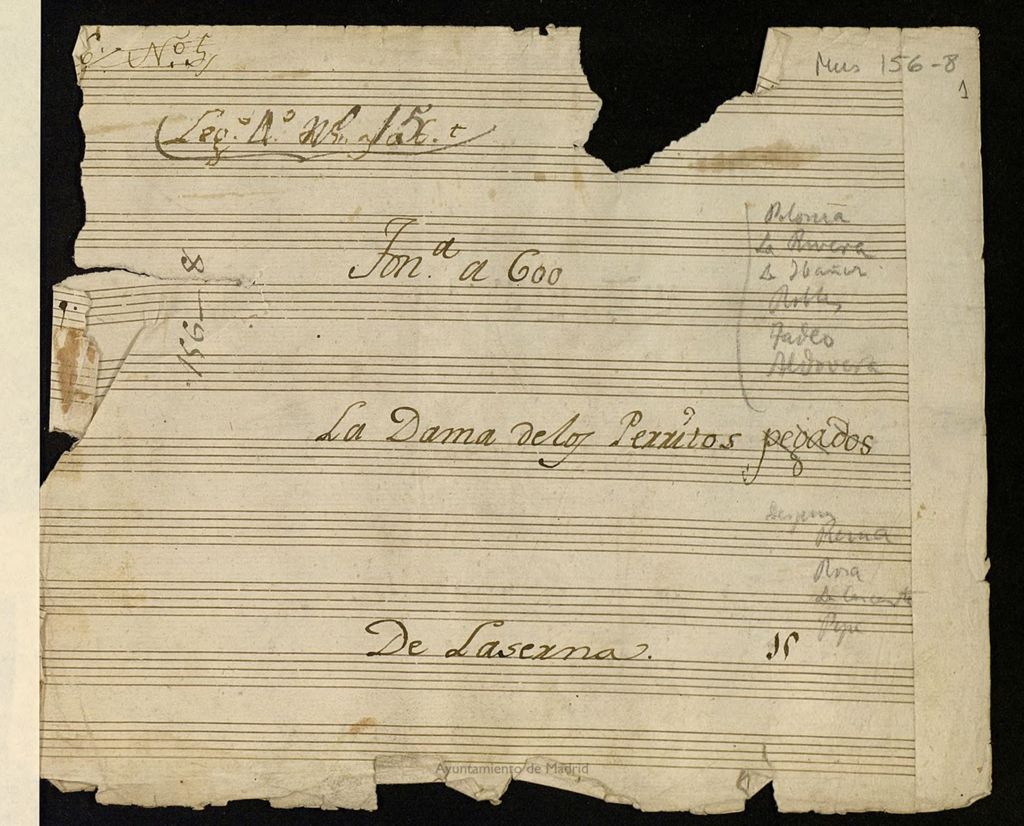 Nº 5
Mus 156-8
1
Leg.º
Ton.ª a 6oo
156-8
Polonia
La Rivera
La Ibañez
Robles
Tadeo
Aldovera
La Dama delos Perritos pegados
Despues
Rosa
Pepe
De Laserna.
Ayuntamiento de Madrid